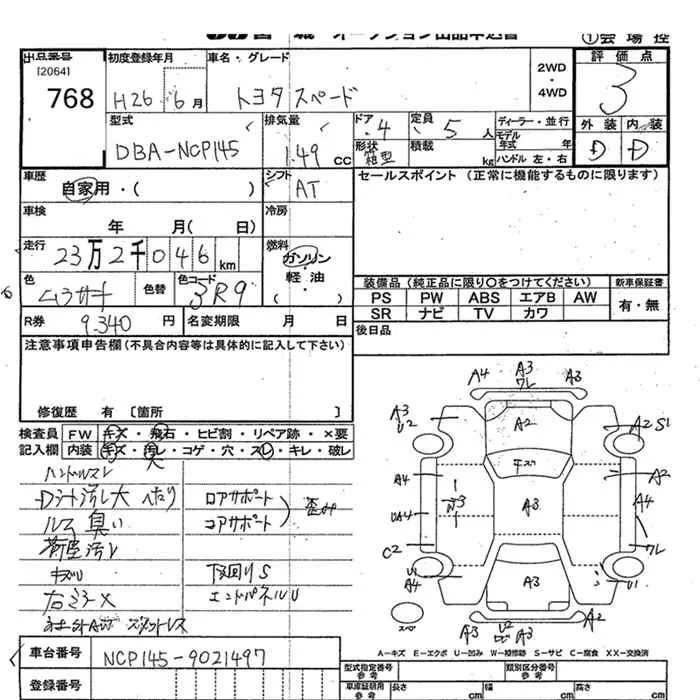 ①会場控
出品番号 初度登録年月 車名・グレード 2WD ・ 4WD 評価点
[2064]
768 H26 6月 トヨタ スペード 3
型式 排気量 ドア 定員 ディーラー・並行 外装 内装
DBA-NCP145 1.49 CC 4 5人 モデル年式 年 D D
形状 箱型 積載 kg ハンドル 左・右
車歴 シフト セールスポイント (正常に機能するものに限ります)
自家用・( ) AT
車検 冷房
年 月( 日)
走行 燃料
23万2千046km ガソリン・軽油・( )
色 色替 色コード 装備品 (純正品に限り○をつけてください) 新車保証書
ムラサキ 3R9 PS PW ABS エアB AW 有・無
SR ナビ TV カワ
R券 9.340円 名変期限 月 日 後日品
注意事項申告欄(不具合内容等は具体的に記入して下さい)
修復歴 有 [箇所 ]
検査員 FW キズ・飛石・ヒビ割・リペア跡・×要
記入欄 内装 キズ・汚レ・コゲ・穴・スレ・キレ・破レ
ハンドルスレ 大
Dシート汚レ大 へたり ロアサポート
ルーム臭い コアサポート 歪み
荷室汚レ
キズU 下回りS
右ミラーX エンドパネルU
スタットレス
車台番号 NCP145-9021497
登録番号
A4 A3 ワレ A3
A3 U2 A2 A2 S1
キズ
A4 A3 A2
UA4 A4
C2 ワレ
U1 A4 A3 U1
スペア A3 U2 A3 A2
A-キズ E-エクボ U-凹み W-補修跡 S-サビ C-腐食 XX-交換済
型式指定番号 参考 類別区分番号 参考
車庫証明用 参考 長さ cm 幅 cm 高さ cm